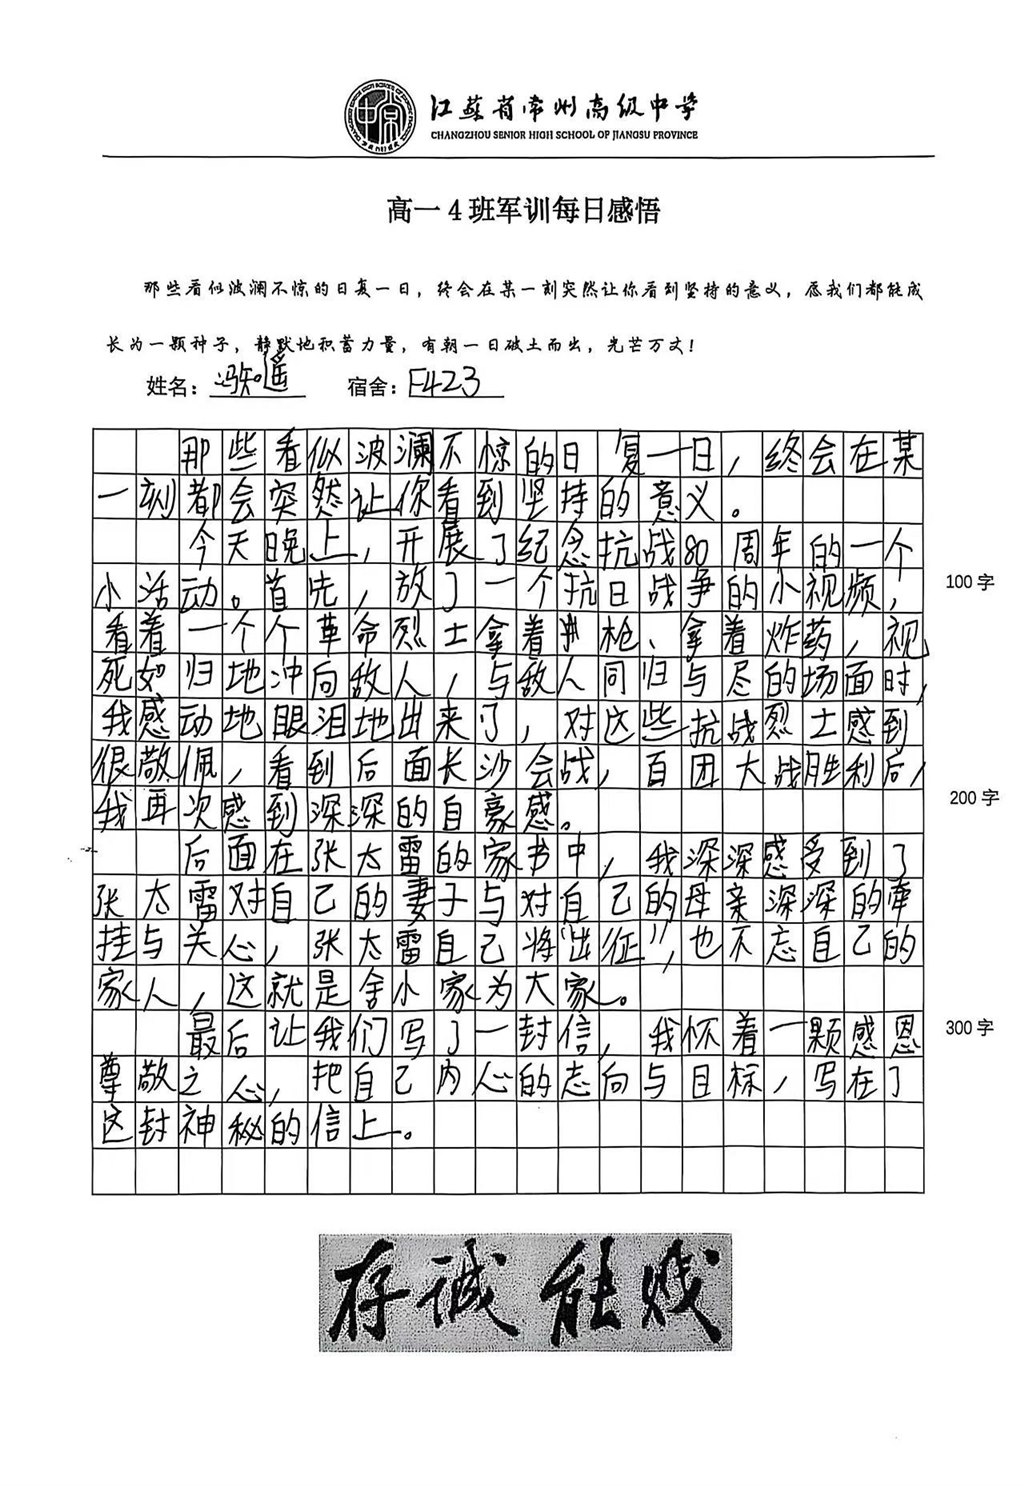 江苏省常州高级中学
CHANGZHOU SENIOR HIGH SCHOOL OF JIANGSU PROVINCE
高一4班军训每日感悟
那些看似波澜不惊的日复一日，终会在某一刻突然让你看到坚持的意义，愿我们都能成
长为一颗种子，静默地积蓄力量，有朝一日破土而出，光芒万丈！
姓名：冯知遥 宿舍：F423
那些看似波澜不惊的日复一日，终会在某
一刻都会突然让你看到坚持的意义。
今天晚上，开展了纪念抗战80周年的一个
小活动。首先，放了一个抗日战争的小视频，
100字
看着一个个革命烈士拿着枪、拿着炸药，视
死如归地冲向敌人，与敌人同归与尽的场面时，
我感动地眼泪地出来了，对这些抗战烈士感到
很敬佩，看到后面长沙会战，百团大战胜利后，
我再次感到深深的自豪感。
200字
后面在张太雷的家书中，我深深感受到了
张太雷对自己的妻子与对自己的母亲深深的牵
挂与关心，张太雷自己将“出征”，也不忘自己的
家人，这就是舍小家为大家。
最后让我们写了一封信，我怀着一颗感恩
300字
尊敬之心，把自己内心的志向与目标，写在了
这封神秘的信上。
存诚 能贱